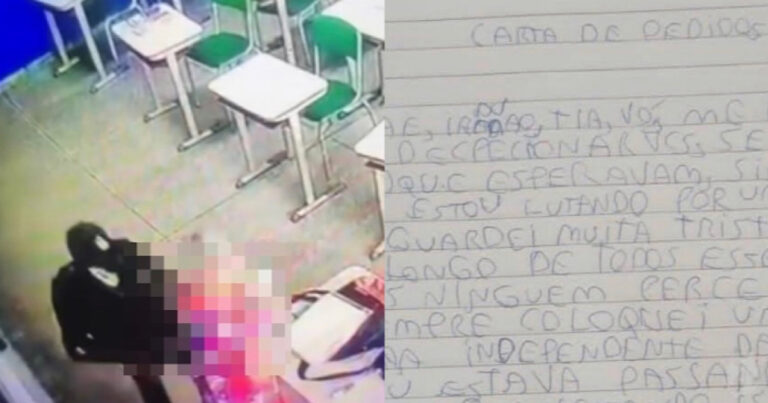 CARTA DE PEDIDOS
AE, IRMAO, TIA, VÓ, ME
DECPECIONAR VCS, SE
OQUE ESPERAVAM, SI
ESTOU LUTANDO POR U
GUARDEI MUITA TRIST
LONGO DE TODOS ESS
S NINGUEM PERCE
MPRE COLOQUEI U
INDEPENDENTE DE
U ESTAVA PASSAN